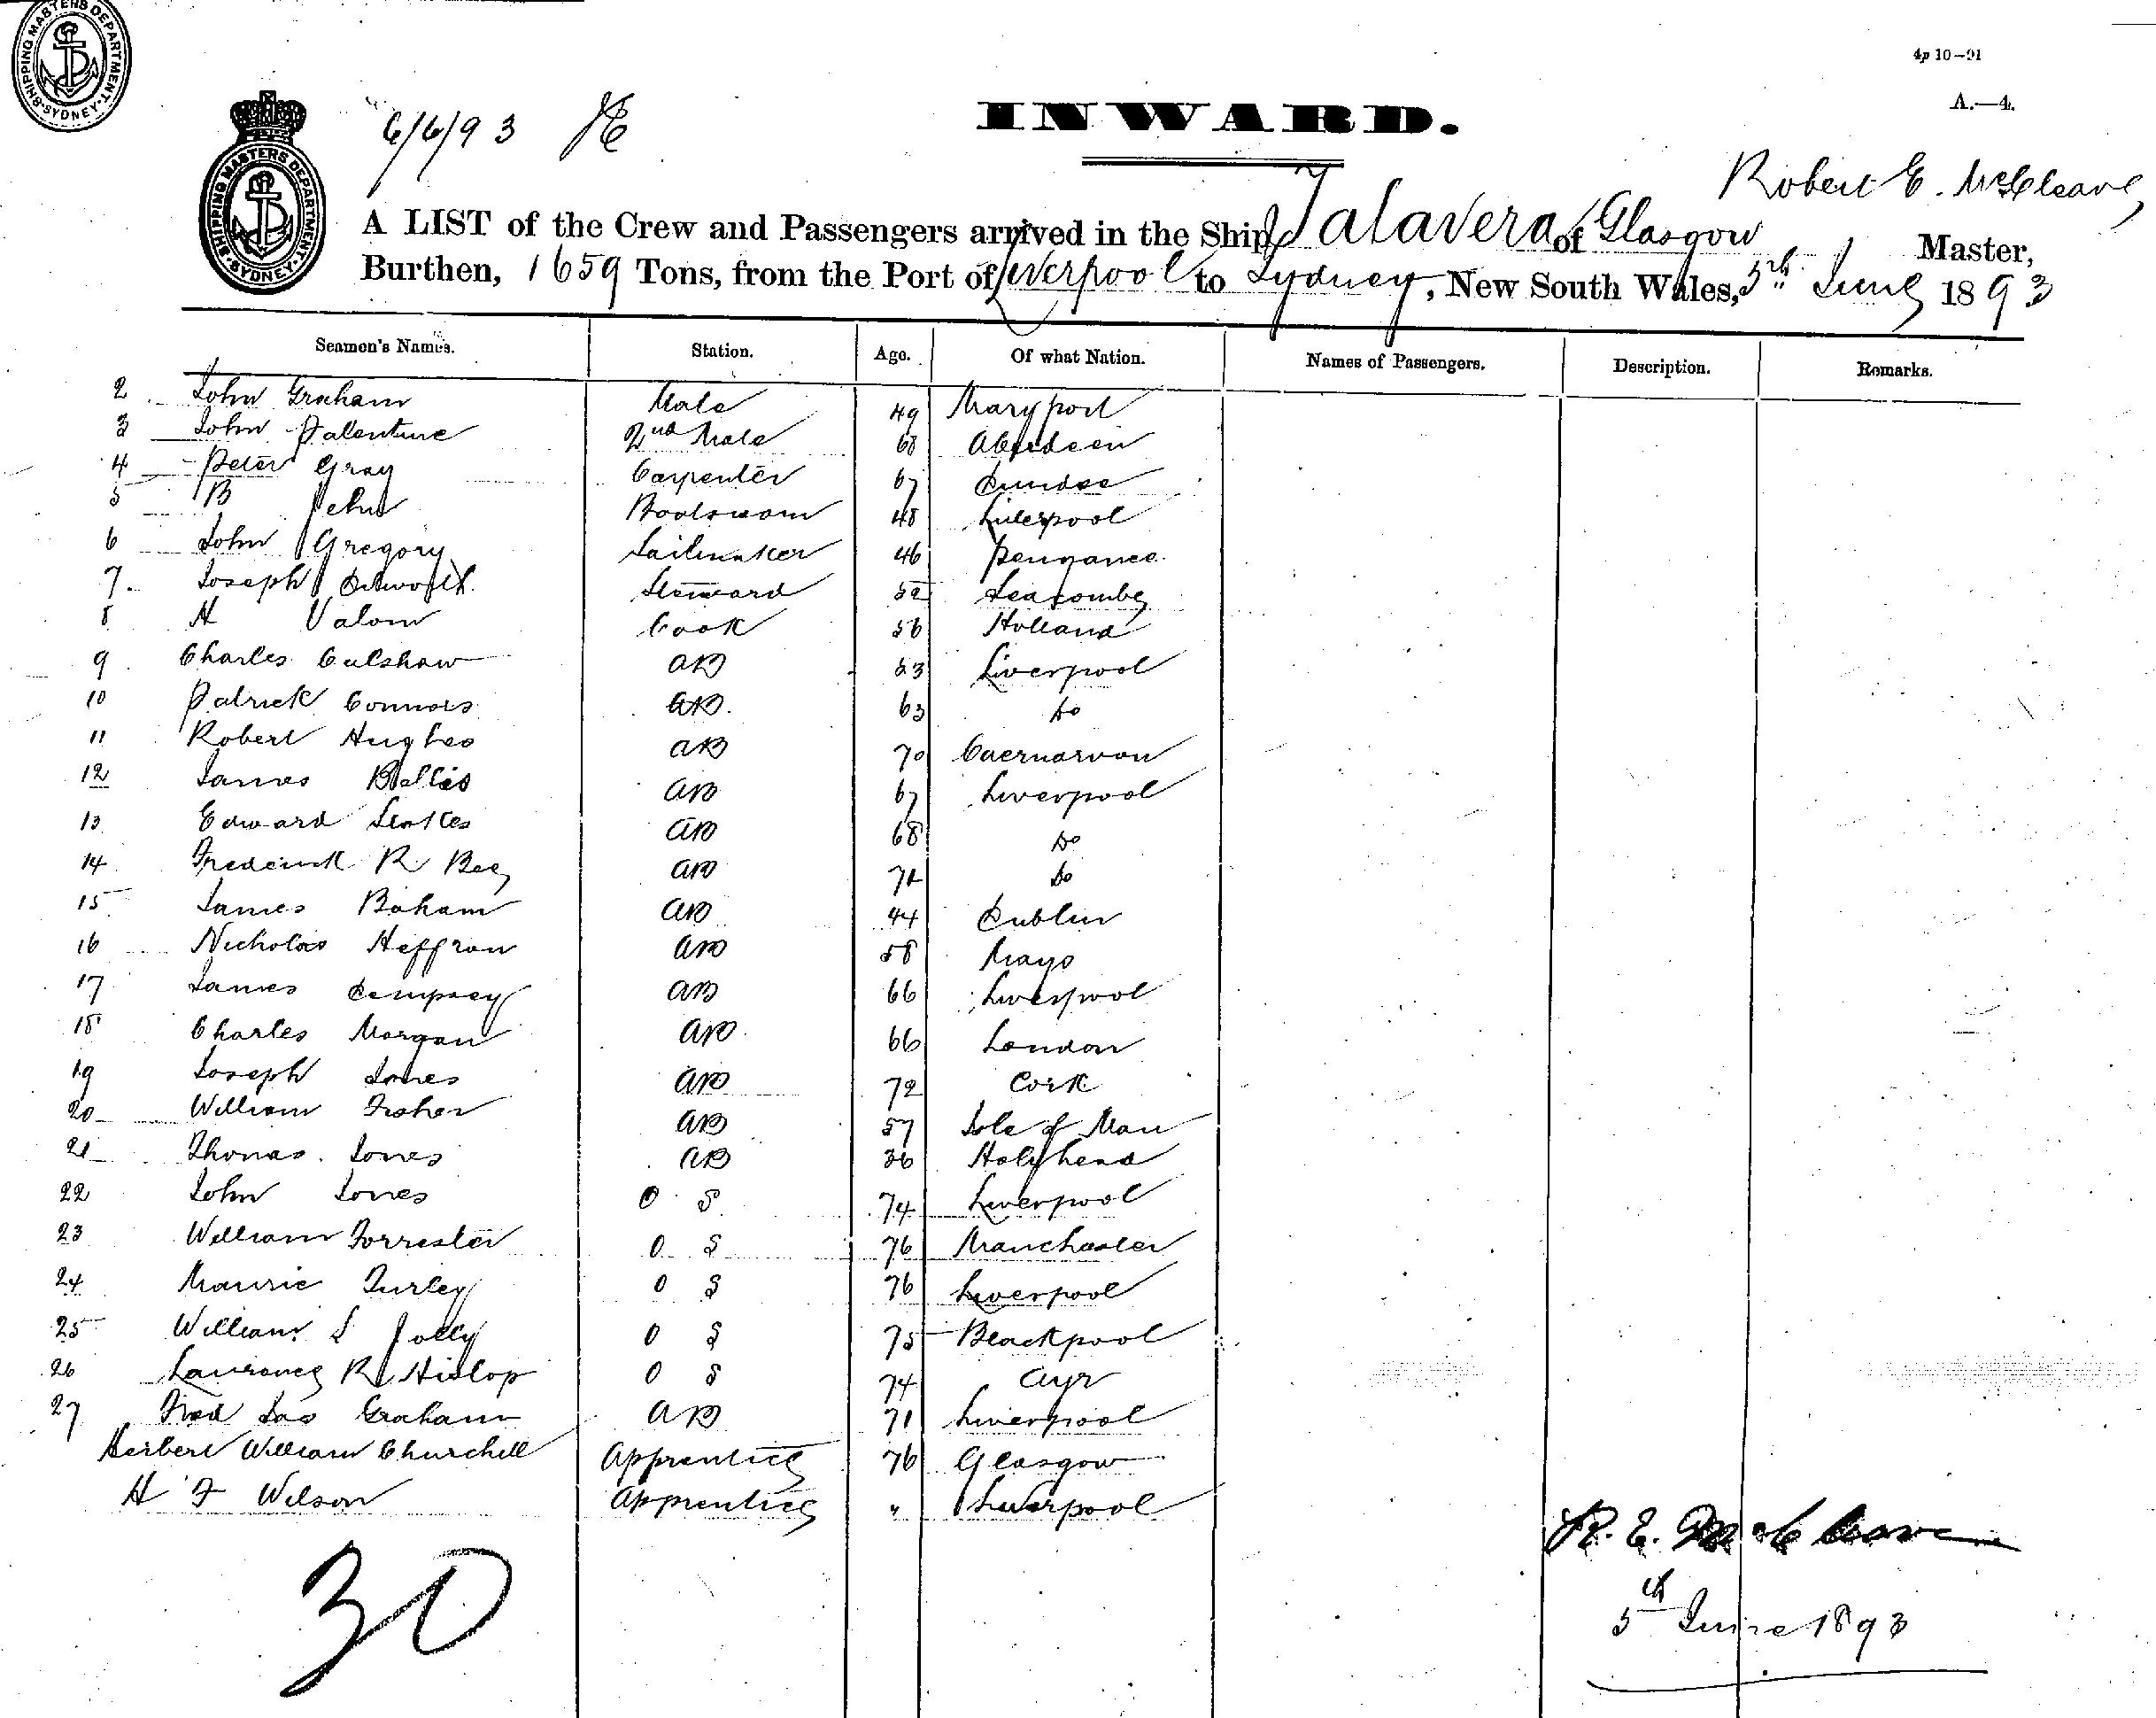 SHIPPING MASTERS DEPARTMENT
SYDNEY
4p 10–91
A.—4.
6/6/93
INWARD.
SHIPPING MASTERS DEPARTMENT
SYDNEY
Robert E. McCleave
A LIST of the Crew and Passengers arrived in the Ship Talavera of Glasgow Master,
Burthen, 1659 Tons, from the Port of Liverpool to Sydney, New South Wales, 5th June 1893
Seamen's Names. Station. Age. Of what Nation. Names of Passengers. Description. Remarks.
2 John Graham Mate 49 Maryport
3 John Palenture 2nd Mate 68 Aberdeen
4 Peter Gray Carpenter 67 Dundee
5 B Boatswain 48 Liverpool
6 John Gregory Sailmaker 46 Penzance
7. Joseph Steward 52 Seacombe
8 H Valom Cook 56 Holland
9 Charles Culshaw AB 53 Liverpool
10 Patrick Connors AB. 63 Do
11 Robert Hughes AB 70 Caernarvon
12 James AB 67 Liverpool
13 Edward AB 68 Do
14 Frederick R Bee AB 72 Do
15 James Boham AB 44 Dublin
16 Nicholas Heffron AB 58 Mayo
17 James Dempsey AB 66 Liverpool
18 Charles Morgan AB 66 London
19 Joseph Jones AB 72 Cork
20 William Fisher AB 57 Isle of Man
21 Thomas Jones AB 36 Holyhead
22 John Jones O S 74 Liverpool
23 William Forrester O S 76 Manchester
24 Maurice Turley O S 76 Liverpool
25 William S Jolly O S 75 Blackpool
26 Laurence R Hislop O S 74 Ayr
27 Fred Jas Graham AB 71 Liverpool
Herbert William Churchill Apprentice 76 Glasgow
H F Wilson Apprentice " Liverpool
R. E. McCleave
30
5th June 1893